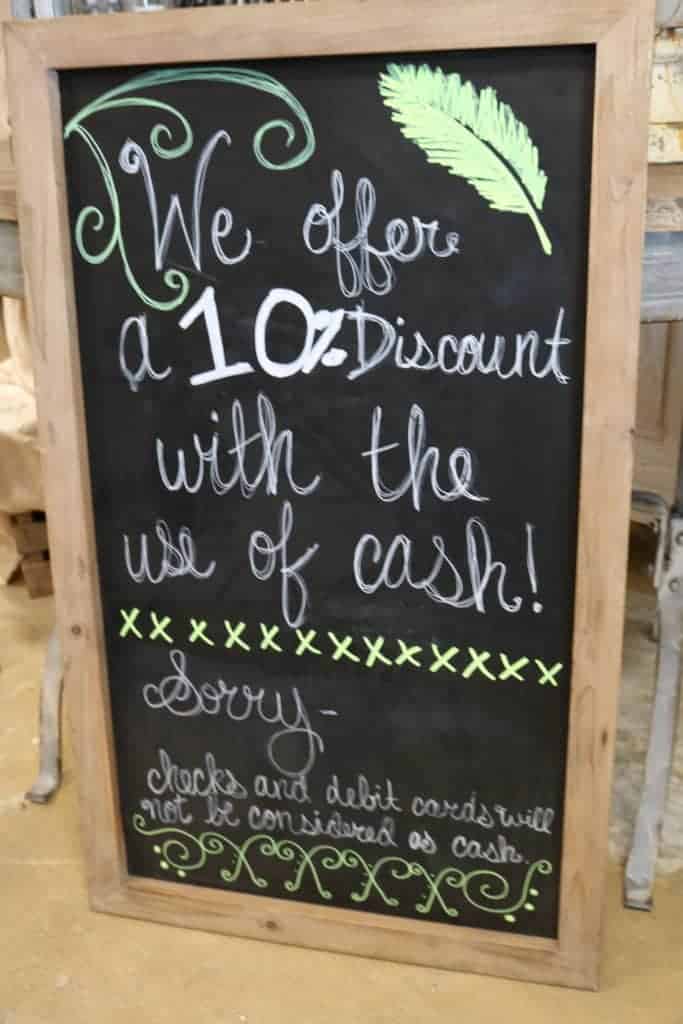 We offer
a 10% Discount
with the
use of cash!
xxxxxxxxxxxxx
Sorry-
checks and debit cards will
not be considered as cash.